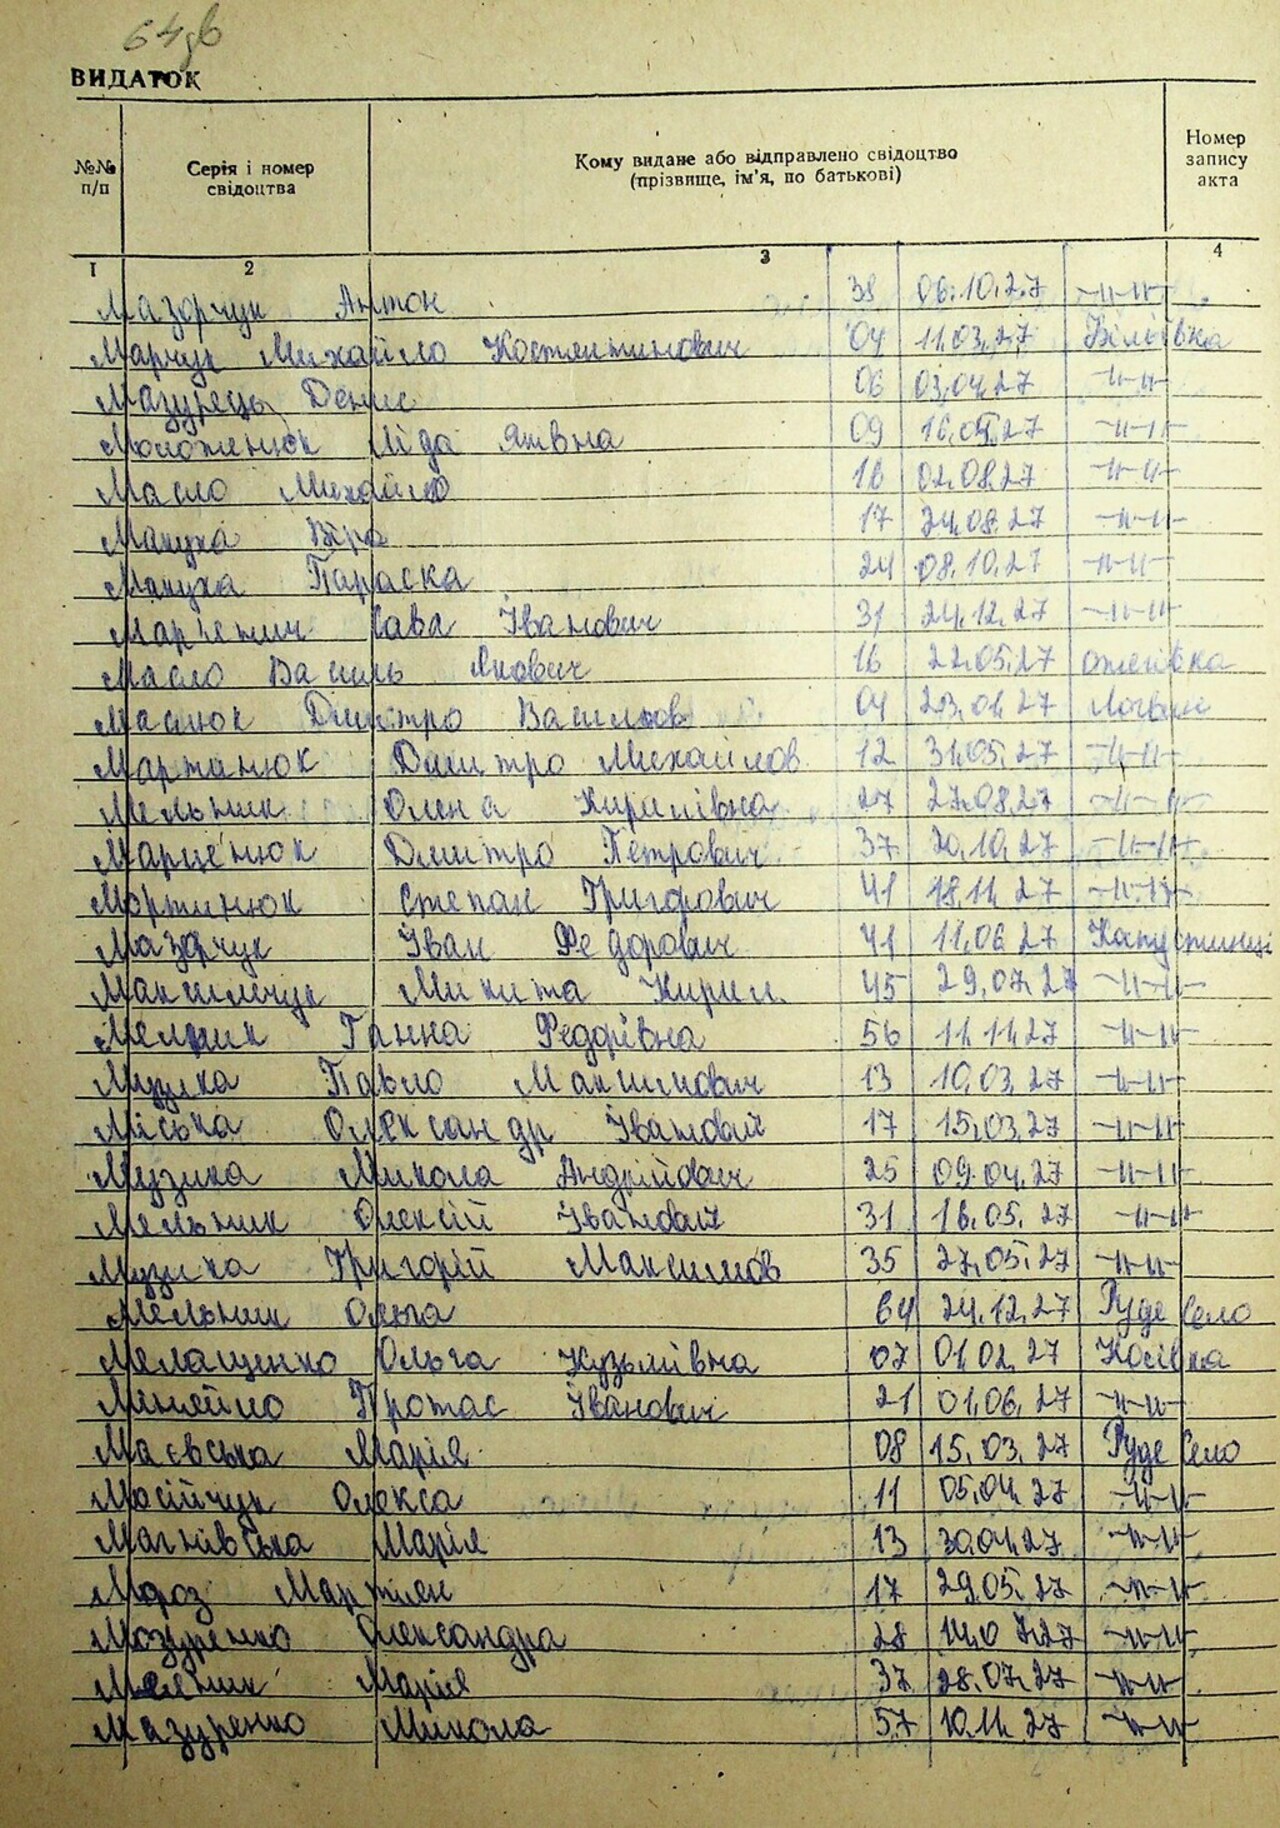 64зв
ВИДАТОК
№№ п/п
Серія і номер свідоцтва
Кому видане або відправлено свідоцтво (прізвище, ім'я, по батькові)
Номер запису акта
1 2 3 4
Мазорчук Антон 38 06.10.27 -"-"-
Марчук Михайло Костянтинович 04 11.03.27 Біліївка
Мазурець Денис 06 03.04.27 -"-"-
Моложенюк Ліда Яківна 09 16.05.27 -"-"-
Масло Михайло 16 02.08.27 -"-"-
Мануха Віра 17 24.08.27 -"-"-
Мануха Параска 24 08.10.27 -"-"-
Сава Іванович 31 24.12.27 -"-"-
Масло Василь Якович 16 22.05.27
Маснюк Дмитро Васильов 04 23.01.27 Логвин
Мартинюк Дмитро Михайлов 12 31.05.27 -"-"-
Мельник Олена Кирилівна 27 27.08.27 -"-"-
Марценюк Дмитро Петрович 37 30.10.27 -"-"-
Мортинюк Степан Григорович 41 18.11.27 -"-"-
Мазорчук Іван Федорович 41 11.06.27 Капустинці
Максимчук Микита Кирил. 45 29.07.27 -"-"-
Мелник Ганна Федорівна 56 11.11.27 -"-"-
Музика Павло Максимович 13 10.03.27 -"-"-
Міська Олександр Іванович 17 15.03.27 -"-"-
Музика Микола Андрійович 25 09.04.27 -"-"-
Мельник Олексій Іванович 31 16.05.27 -"-"-
Музика Григорій Максимов 35 27.05.27 -"-"-
Мельник Ольга 64 24.12.27 Руде Село
Мелащенко Ольга Кузьмівна 07 01.02.27 Косівка
Минейло Протас Іванович 21 01.06.27 -"-"-
Маєвська Марія 08 15.03.27 Руде Село
Мосійчук Олекса 11 05.04.27 -"-"-
Магнівська Марія 13 30.04.27 -"-"-
Мороз Мартян 17 29.05.27 -"-"-
Мозуренко Олександра 28 14.07.27 -"-"-
Мелник Марія 37 28.07.27 -"-"-
Мазуренко Микола 57 10.11.27 -"-"-